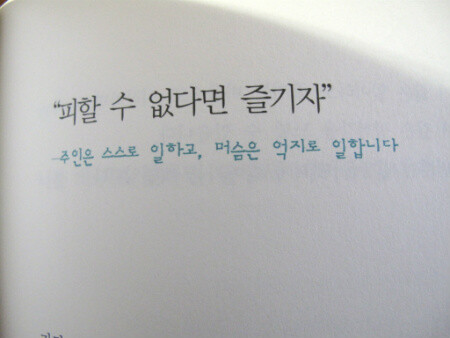 “피할 수 없다면 즐기자”
주인은 스스로 일하고, 머슴은 억지로 일합니다